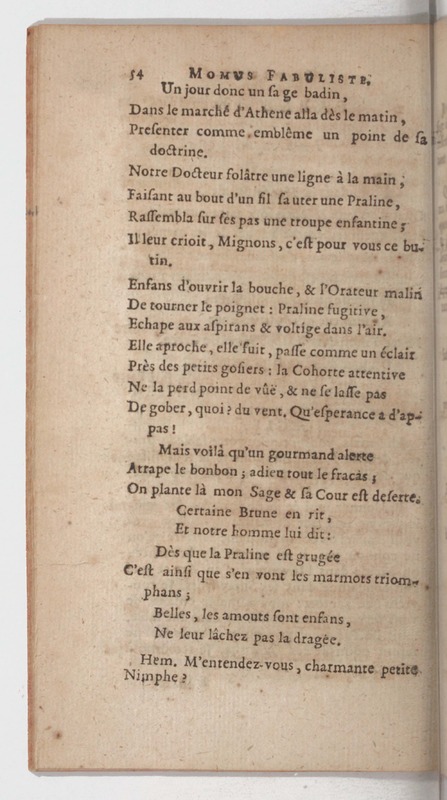 54 MOMUS FABULISTE,
Un jour donc un sage badin,
Dans le marché d'Athene alla dès le matin,
Presenter comme emblême un point de sa
doctrine.
Notre Docteur folâtre une ligne à la main,
Faisant au bout d'un fil sauter une Praline,
Rassembla sur ses pas une troupe enfantine;
Il leur crioit, Mignons, c'est pour vous ce bu-
tin.
Enfans d'ouvrir la bouche, & l'Orateur malin
De tourner le poignet: Praline fugitive,
Echape aux aspirans & voltige dans l'air.
Elle aproche, elle fuit, passe comme un éclair
Près des petits gosiers: la Cohorte attentive
Ne la perd point de vûë, & ne se lasse pas
De gober, quoi? du vent. Qu'esperance a d'ap-
pas!
Mais voilà qu'un gourmand alerte
Atrape le bonbon; adieu tout le fracas;
On plante là mon Sage & sa Cour est deserte.
Certaine Brune en rit,
Et notre homme lui dit:
Dès que la Praline est grugée
C'est ainsi que s'en vont les marmots triom-
phans;
Belles, les amours sont enfans,
Ne leur lâchez pas la dragée.
Hem. M'entendez-vous, charmante petite
Nimphe?